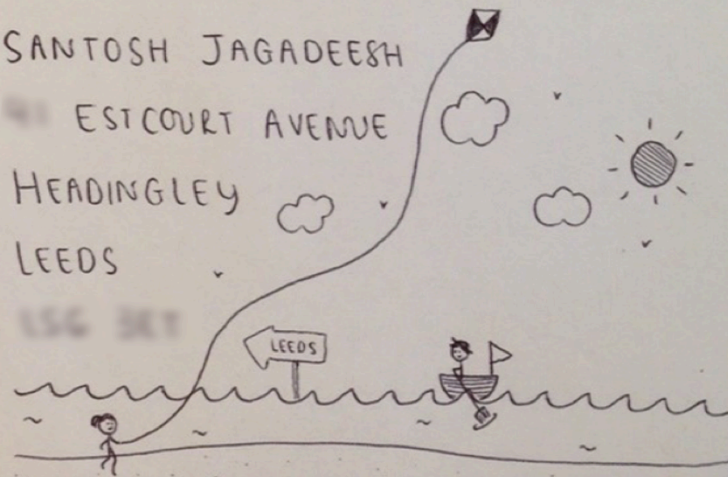 SANTOSH JAGADEESH
ESTCOURT AVENUE
HEADINGLEY
LEEDS
LEEDS